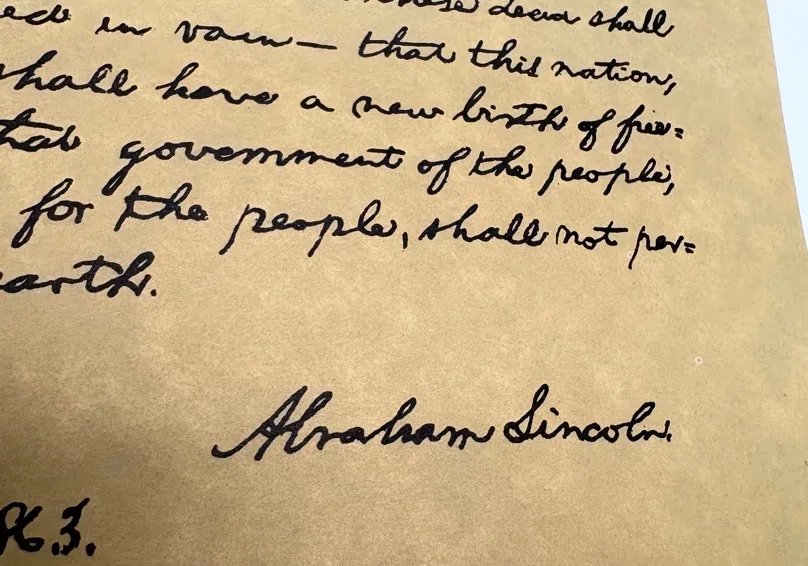 these dead shall
ed in vain — that this nation,
shall have a new birth of free=
hat government of the people,
for the people, shall not per=
earth.
Abraham Lincoln.
863.